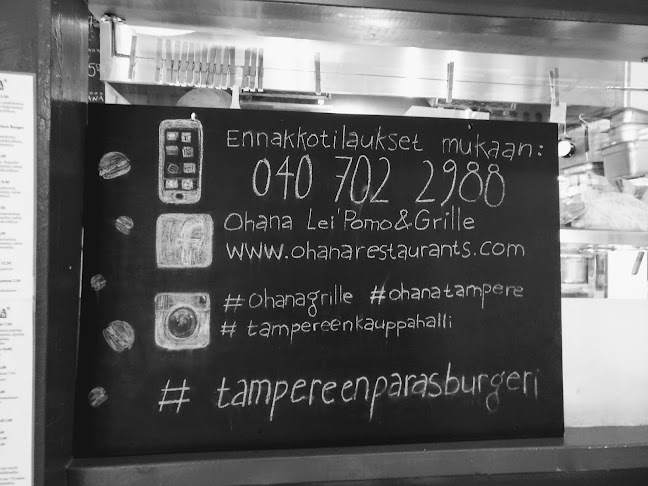 Ennakkotilaukset mukaan:
040 702 2988
Ohana Lei'Pomo&Grille
www.ohanarestaurants.com
#Ohanagrille #ohanatampere
#tampereenkauppahalli
# tampereenparasburgeri